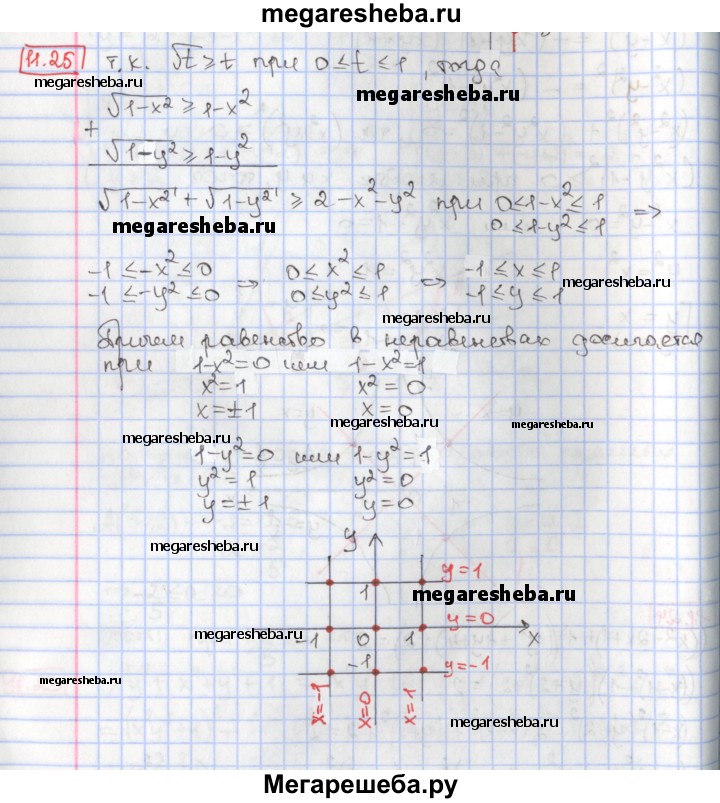 megaresheba.ru
11.25 т.к. √t ≥ t при 0 ≤ t ≤ 1, тогда
megaresheba.ru
megaresheba.ru
√1-x² ≥ 1-x²
+
√1-y² ≥ 1-y²
megaresheba.ru
√1-x² + √1-y² ≥ 2-x²-y² при 0≤1-x²≤1
0≤1-y²≤1 =>
megaresheba.ru
-1 ≤ -x² ≤ 0 => 0 ≤ x² ≤ 1 => -1 ≤ x ≤ 1
-1 ≤ -y² ≤ 0 0 ≤ y² ≤ 1 -1 ≤ y ≤ 1
megaresheba.ru
megaresheba.ru
Причем равенство в неравенствах достигается
при 1-x²=0 или 1-x²=1
megaresheba.ru
x²=1 x²=0
x=±1 x=0
megaresheba.ru
megaresheba.ru
megaresheba.ru
1-y²=0 или 1-y²=1
y²=1 y²=0
y=±1 y=0
megaresheba.ru
y
y=1
1
megaresheba.ru
y=0
megaresheba.ru
-1 0 1 x
-1 y=-1
megaresheba.ru
x=-1 x=0 x=1
megaresheba.ru
Мегарешеба.ру